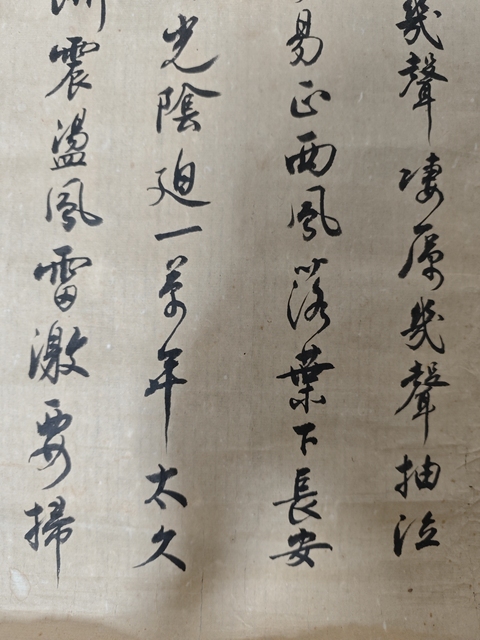 幾聲凄厲幾聲抽泣
易正西風落葉下長安
光陰廹一萬年太久
洲震盪風雷激要掃